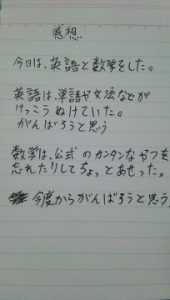 感想
今日は、英語と数学をした。
英語は、単語や文法などが
けっこうぬけていた。
がんばろうと思う
数学は、公式のカンタンなやつを
忘れたりしてちょっとあせった。
今度からがんばろうと思う。